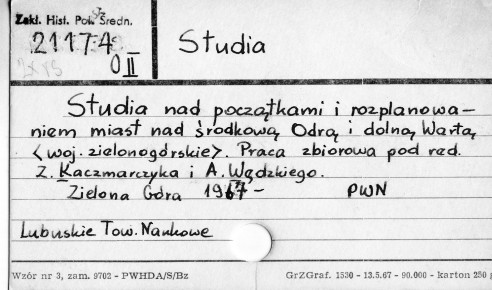 Zakł. Hist. Pol. Średn.
21174
O II
Studia
Studia nad początkami i rozplanowa-
niem miast nad środkową Odrą i dolną Wartą
<woj. zielonogórskie>. Praca zbiorowa pod red.
Z. Kaczmarczyka i A. Wędzkiego.
Zielona Góra 1967- PWN
Lubuskie Tow. Naukowe
Wzór nr 3, zam. 9702 - PWHDA/S/Bz GrZGraf. 1530 - 13.5.67 - 90.000 - karton 250 g